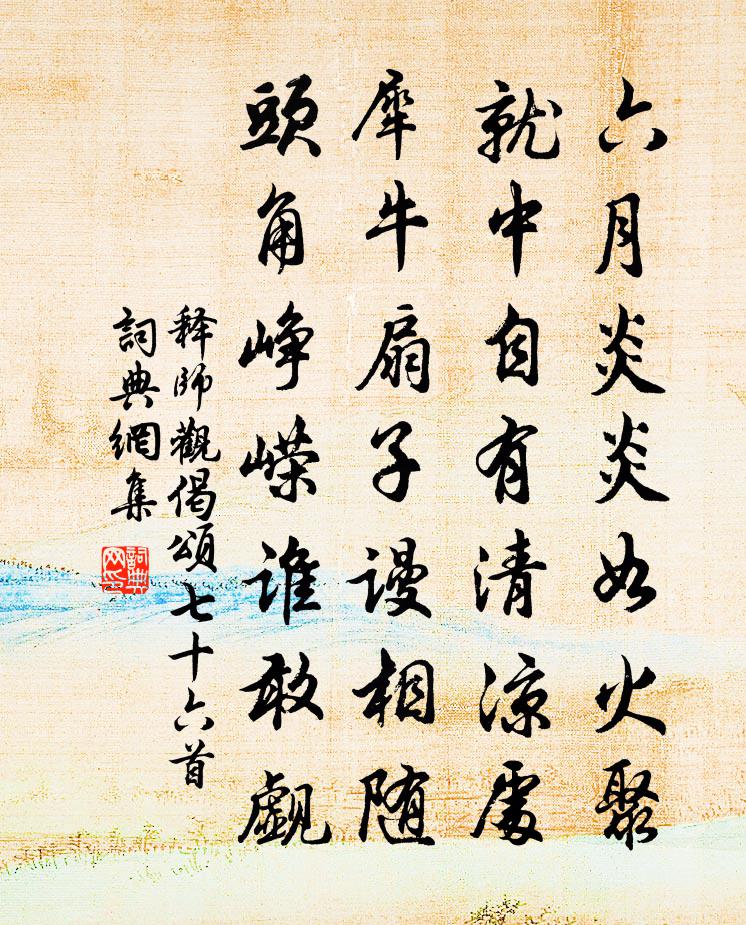 六月炎炎如火聚
就中自有清凉處
犀牛扇子謾相随
頭角崢嶸誰敢覷
释師觀偈頌七十六首
詞典網集